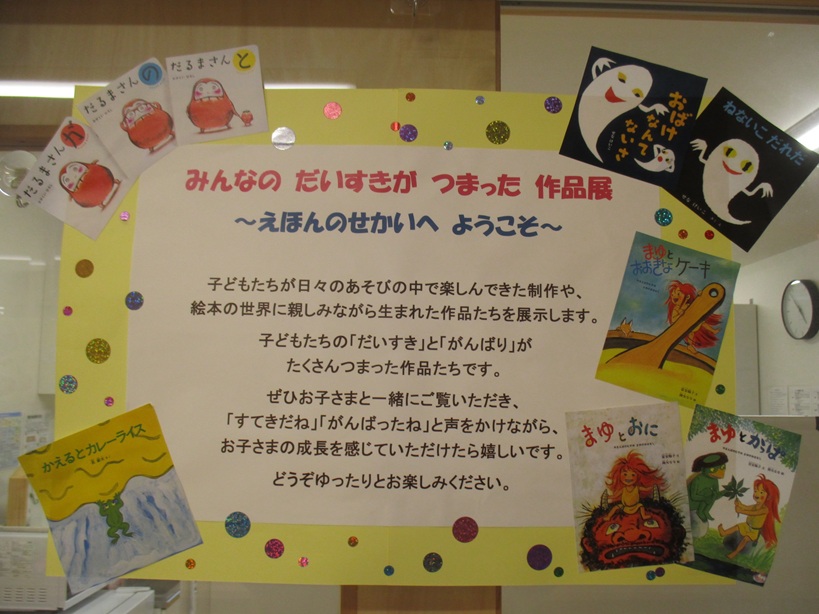 だるまさんが
だるまさんの
だるまさんと
おばけ
なんて
ないさ
ねないこ だれだ
みんなの だいすきが つまった 作品展
～えほんのせかいへ ようこそ～
子どもたちが日々のあそびの中で楽しんできた制作や、
絵本の世界に親しみながら生まれた作品たちを展示します。
子どもたちの「だいすき」と「がんばり」が
たくさんつまった作品たちです。
ぜひお子さまと一緒にご覧いただき、
「すてきだね」「がんばったね」と声をかけながら、
お子さまの成長を感じていただけたら嬉しいです。
どうぞゆったりとお楽しみください。
まゆと
おおきなケーキ
かえるとカレーライス
まゆとおに
まゆとかっぱ